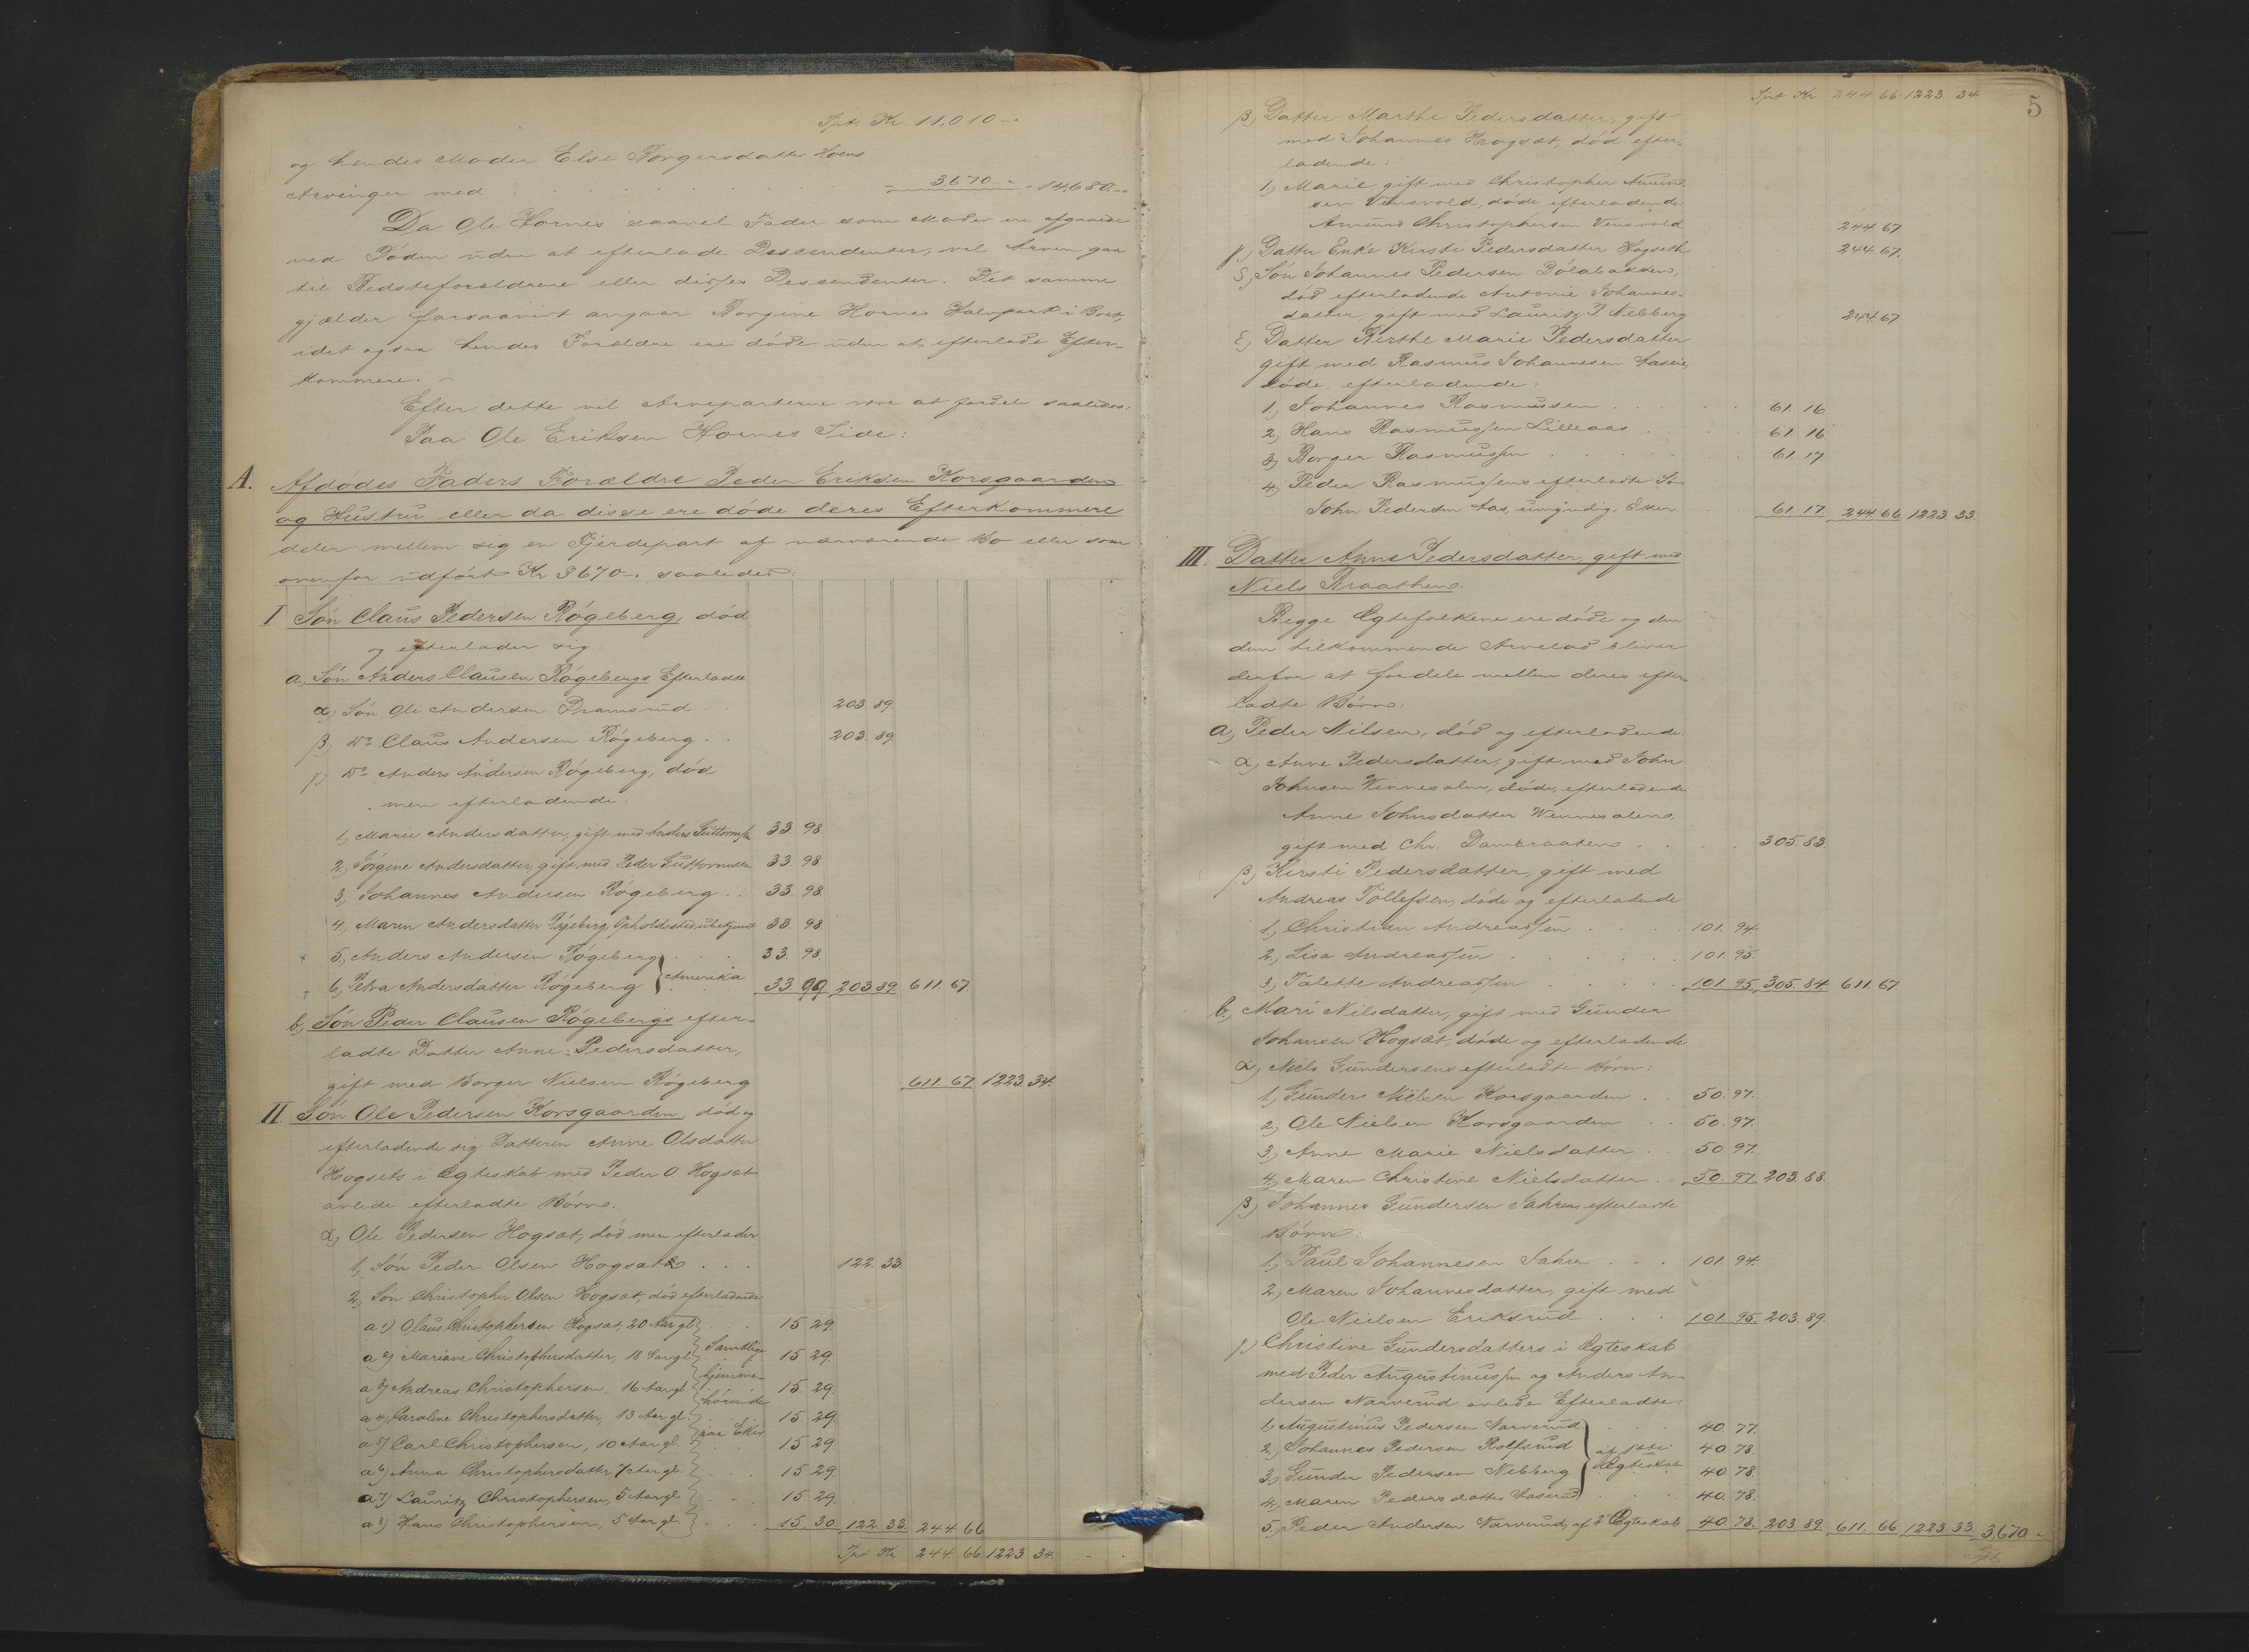 Tpt. Kr. 11,010 -.
og hendes Moder Else Borgersdatter Hoens
Arvinger med . . . . . . . . - 3670 - - 14,680. -
Da Ole Hornes saavel Fader som Moder ere afgaaede
ved Døden uden at efterlade Descendenter, vil Arven gaa
til Bedsteforældrene eller disses Descendenter. Det samme
gjælder forsaavidt angaar Borgine Hornes Halvpart i Boet,
idet ogsaa hendes Forældre ere døde uden at efterlade Efter-
kommere. -
Efter dette vil Arveparterne være at fordele saaledes:
Paa Ole Eriksen Hornes Side:
A. Afdødes Faders Forældre Peder Eriksen Korsgaarden
og Hustru eller da disse ere døde deres Efterkommere
deler mellem sig en Fjerdepart af nærværende Bo eller som
ovenfor udført Kr 3670 -. saaledes:
I Søn Claus Pedersen Røgeberg, død
og efterlader sig:
a, Søn Anders Clausen Røgebergs Efterladte
α) Søn Ole Andersen Pramsrud . . 203. 89.
β) Do Claus Andersen Røgeberg . . 203. 89.
γ) Do Anders Andersen Røgeberg, død
men efterladende:
1, Marie Andersdatter, gift med Anders Guttormsen 33. 98
2, Jørgine Andersdatter, gift med Peder Guttormsen 33 98
3, Johannes Andersen Røgeberg . . 33. 98.
4, Maren Andersdatter Røgeberg, Opholdssted ubekjendt 33. 98.
5, Anders Andersen Røgeberg . . 33. 98.
6, Petra Andersdatter Røgeberg } Amerika 33. 99. 203 89 611. 67.
b, Søn Peder Clausen Røgebergs efter-
ladte Datter Anne Pedersdatter,
gift med Borger Nielsen Røgeberg 611. 67. 1223 34.
II. Søn Ole Pedersen Korsgaarden, død og
efterladende sig Datteren Anne Olsdatter
Hogsets i Ægteskab med Peder O. Hogsæt
avlede efterladte Børn:
α, Ole Pedersen Hogsæt, død men efterlader
1, Søn Peder Olsen Hogsæt . . . 122. 33.
2, Søn Christopher Olsen Hogsæt, død efterladende
a 1) Olaus Christophersen Hogsæt, 20 Aar gl. . . 15 29.
a 2) Mariane Christophersdatter, 18 Aar gl. Samtlige 15 29.
a 3) Andreas Christophersen, 16 Aar gl. hjemme- 15. 29.
a 4) Caroline Christophersdatter, 13 Aar gl. hørende 15. 29.
a 5) Carl Christophersen, 10 Aar gl. paa Eker 15 29.
a 6) Anna Christophersdatter, 7 Aar gl. . . 15 29.
a 7) Lauritz Christophersen, 5 Aar gl. . . 15 29.
a 8) Hans Christophersen, 5 Aar gl. . . 15. 30. 122. 33. 244 66
Tpt Kr 244. 66 1223. 34.
5
Tpt Kr. 244 66 1223. 34.
β, Datter Marthe Pedersdatter, gift
med Johannes Hogsæt, død efter-
ladende:
1, Marie gift med Christopher Amund-
sen Vensvold, døde efterladende:
Amund Christophersen Vensvold 244 67.
γ) Datter Enke Kirsti Pedersdatter Hogseth 244. 67.
δ, Søn Johannes Pedersen Dølabakken,
død efterladende Antonie Johannes-
datter, gift med Lauritz P. Nebberg 244. 67.
ε, Datter Berthe Marie Pedersdatter
gift med Rasmus Johannesen Aaserud,
døde, efterladende:
1, Johannes Rasmussen . . . . 61. 16.
2, Hans Rasmussen Lilleaas . . 61. 16
3, Borger Rasmussen . . . . . 61. 17
4, Peder Rasmussens efterladte Søn
John Pedersen Aas, umyndig, Eker. 61. 17. 244 66 1223. 33.
III. Datter Anne Pedersdatter, gift med
Niels Braathen.
Begge Ægtefolkene ere døde og den
dem tilkommende Arvelod bliver
derfor at fordele mellem deres efter-
ladte Børn:
a, Peder Nilsen, død og efterladende
α, Anne Pedersdatter, gift med John
Johnsen Vinnesalen, døde, efterladende
Anne Johnsdatter Winnesalen,
gift med Chr. Dambraaten . . . 305. 83.
β, Kirsti Pedersdatter, gift med
Andreas Tollefsen, døde og efterladende
1, Christian Andreassen . . . . 101. 94.
2, Lisa Andreassen . . . . . . 101. 95.
3, Talette Andreassen . . . . . 101. 95. 305. 84 611. 67
b., Mari Nilsdatter, gift med Gunder
Johansen Hogsæt, døde og efterladende
α, Niels Gundersens efterladte Børn:
1, Gunder Nielsen Korsgaarden . . 50. 97.
2, Ole Nielsen Korsgaarden . . 50. 97.
3, Anne Marie Nielsdatter . . 50. 97.
4, Maren Christine Nielsdatter . . 50. 97. 203. 88.
β, Johannes Gundersen Jahrens efterladte
Børn:
1, Paul Johannesen Jahren . . . 101. 94.
2, Maren Johannesdatter, gift med
Ole Nielsen Eriksrud . . . 101. 95. 203 89.
γ) Christine Gundersdatters i Ægteskab
med Peder Augustinussen og Anders An-
dersen Narverud avlede Efterladte:
1, Augustinus Pedersen Narverud . . . 40. 77.
2, Johannes Pedersen Rolfsrud } af 1ste 40 78.
3, Gunder Pedersen Nebberg Ægteskab 40 78.
4, Maren Pedersdatter Aaserud . . . 40. 78.
5, Peder Andersen Narverud, af 2t Ægteskab 40. 78. 203. 89. 611. 66 1223. 33. 3670 -
Tpt.